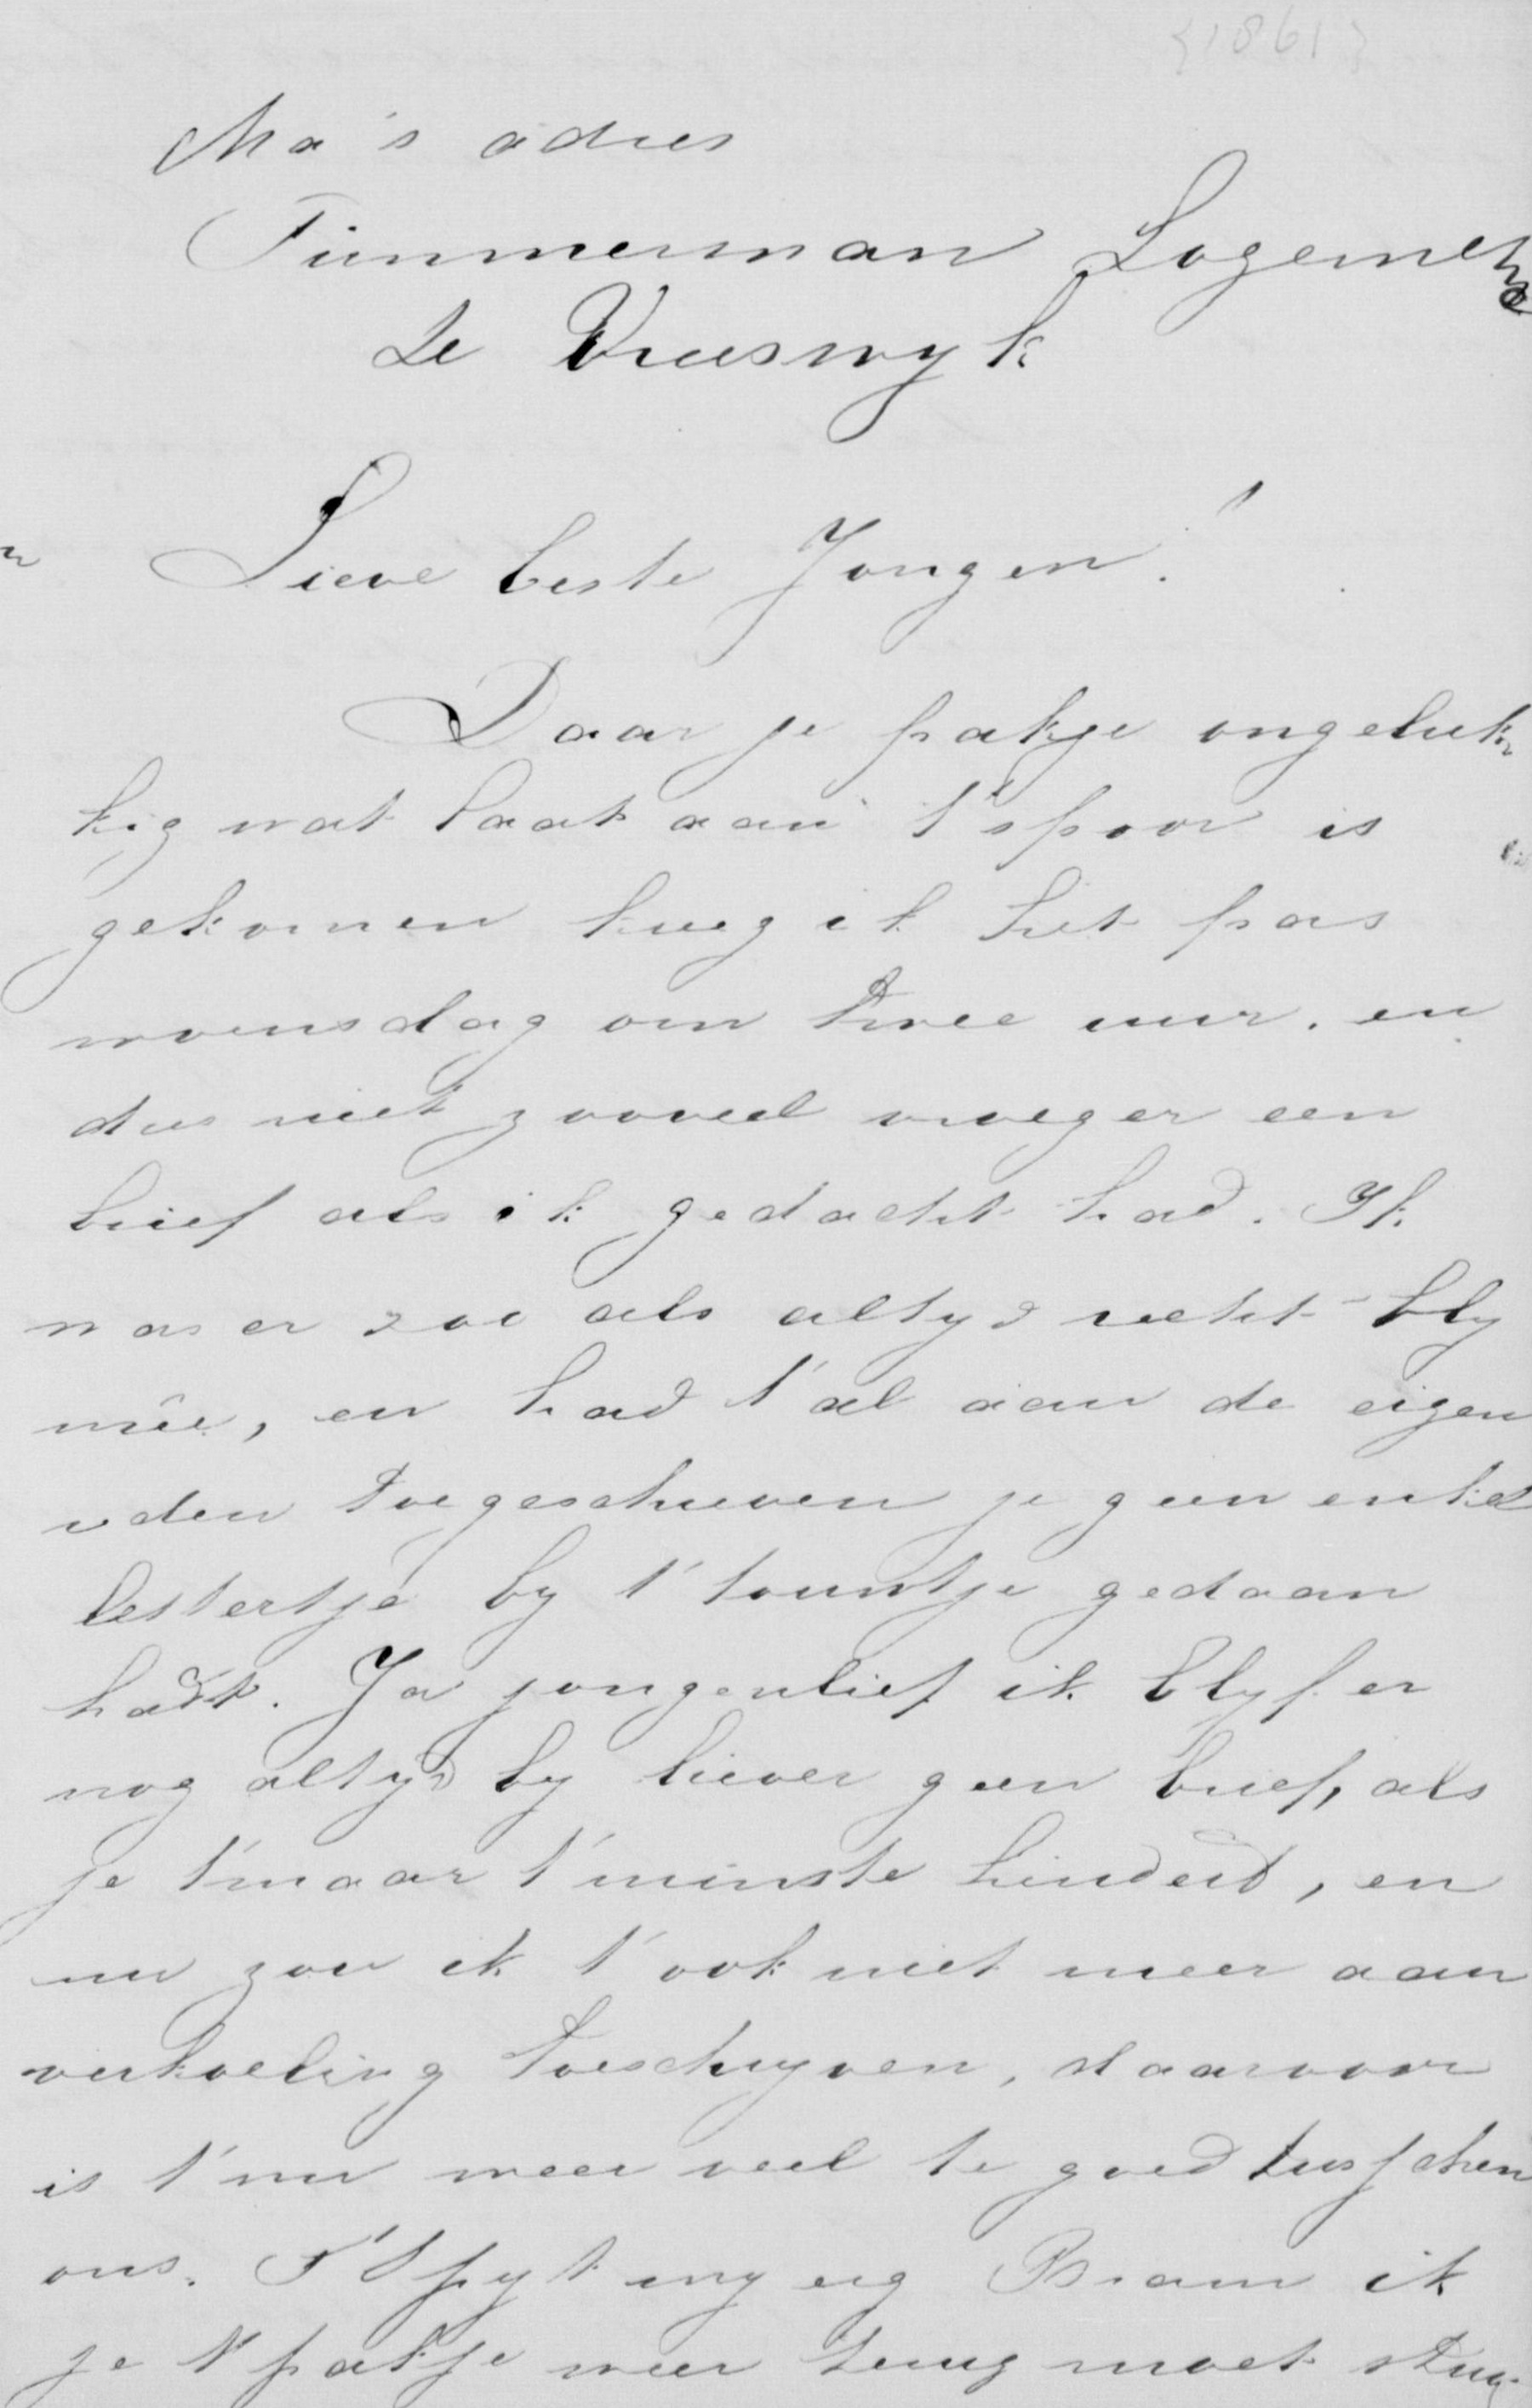 {1861}
Ma's adres
Timmerman Logement
te Vreeswyk
Lieve beste Jongen!
Daar je pakje ongeluk
kig wat laat aan t'spoor is
gekomen kreeg ik het pas
woensdag om twee uur. en
dus niet zooveel vroeger een
brief als ik gedacht had. Ik
was er zoo als altyd recht bly
mêe, en had t'al aan de eigen
reden toegeschreven je geen enkel
lettertje by t'touwtje gedaan
hadt. Ja jongenlief ik blyf er
nog altyd by liever geen brief, als
je t'maar t'minste hinderd, en
nu zou ik t'ook niet meer aan
verkoeling toeschryven, daarvoor
is t'nu weer veel te goed tusschen
ons. T'spyt my erg Bram ik
je t'pakje weer terug moet stuu